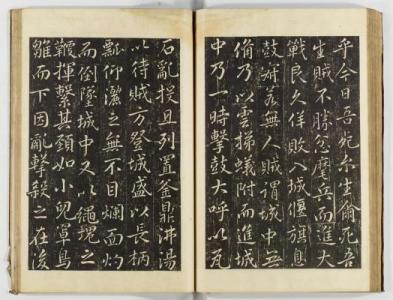 乎今日吾死尔生爾死吾
生賊不勝忿麾兵而進大
戰良久佯敗入城偃旗息
鼓寂若無人賊謂城中無
備乃以雲梯蟻附而進城
中乃一時擊鼓大呼以瓦
石亂投且列置釜鼎沸湯
以待賊方登城盛以長柄
瓢仰灑之無不目爛而灼
而倒墜城中又以繩之
揮繫其頸如小兒罩鳥
雛而下因亂擊殺之在後